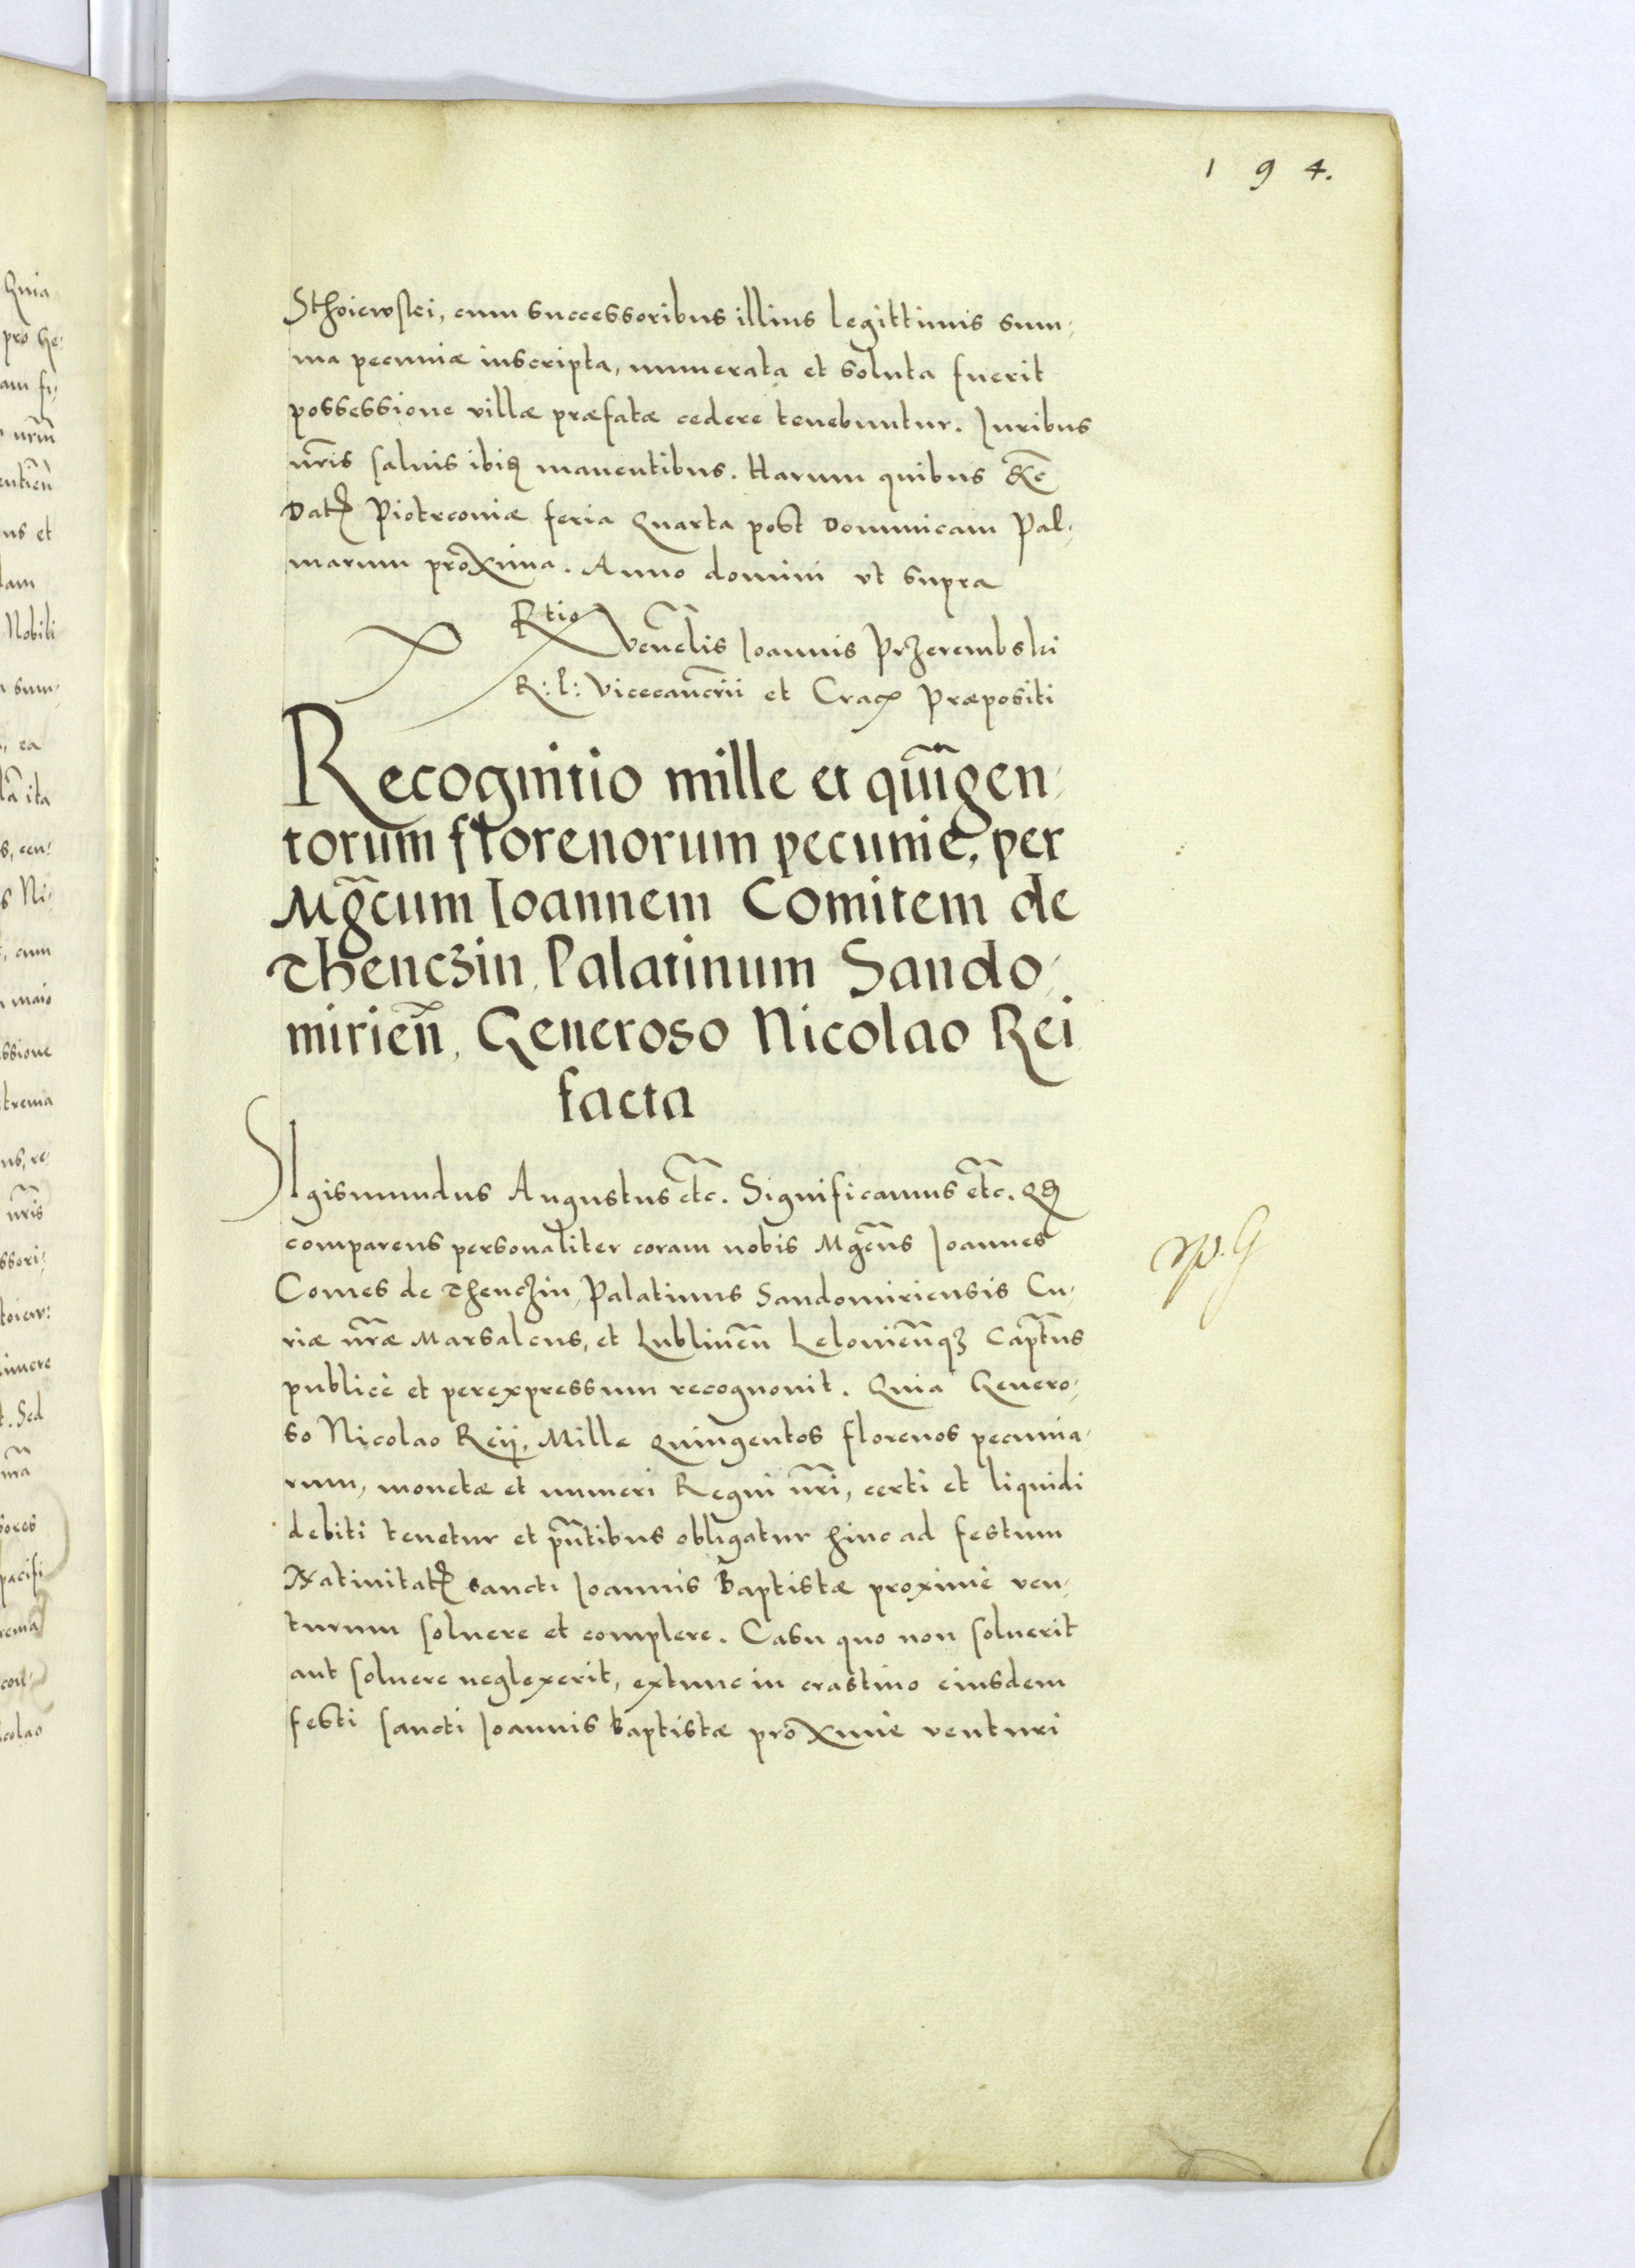 194.
Sthoiewskei, cum successoribus illius legittimis sum-
ma pecuniæ inscripta, numerata et soluta fuerit
possessione villæ præfatæ cedere tenebuntur. Iuribus
nr̃is saluis ibiq manentibus. Harum quibus &c̃
Dat Piotrconiæ feria Quarta post Dominicam Pal-
marum proxima. Anno domini vt supra
Rtio Ven̄elis Ioannis Przerembski
R: P: Vicecanc̄rii et Crac Præpositi
Recognitio mille et quīgen-
torum florenorum pecunie, per
Mg̃cum Ioannem Comitem de
Thenczin, Palatinum Sando-
mirien̄, Generoso Nicolao Rei
facta
SIgismundus Augustus etc̃. Significamus etc̃. Qq
comparens personaliter coram nobis Mg̃cus Ioannes
Comes de Thenczin, Palatinus Sandomiriensis Cu-
riæ nr̃æ Marsalcus, et Lublinen̄ Lelouien̄qz Capt̄us
publicè et perexpressum recognouit. Quia Genero-
so Nicolao Reij, Mille Quingentos florenos pecunia-
rum, monetæ et numeri Regni nr̃i, certi et liquidi
debiti tenetur et pn̄tibus obligatur hinc ad festum
Natiuitat sancti Ioannis Baptistæ proximè ven-
turum soluere et complere. Casu quo non soluerit
aut soluere neglexerit, extunc in crastino eiusdem
festi sancti Ioannis Baptistæ proximè venturi